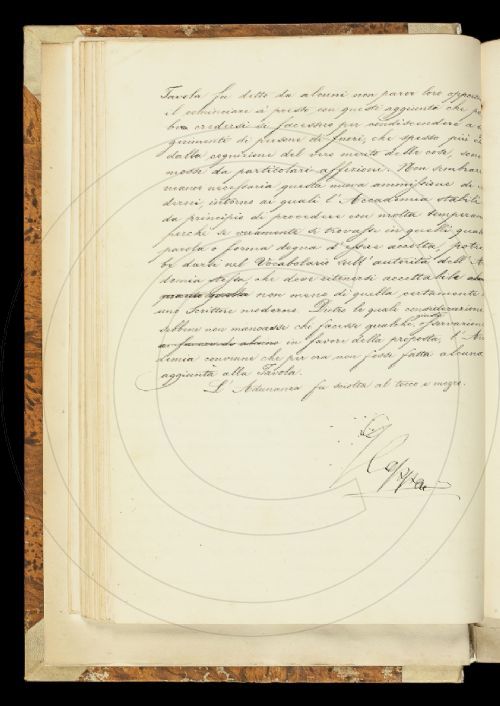 Tavola fu detto da alcuni non parer loro opportu
il cominciare a' presto con queste aggiunte che po
credersi si facessero per condiscendere a
di persone di fuori, che spesso più
dalla cognizione del vero merito delle cose, sono
mosse da particolari affezioni. Non sembrare
necessaria questa nuova ammissione di
derni, intorno ai quali l'Accademia stabilì
da principio di procedere con molta temperan
perchè se veramente si trovasse in quelli qual
parola o forma degna d'essere accolta, potre
be darsi nel Vocabolario sull'autorità dell'A
demia stessa, che deve ritenersi accettabile
non meno di quella certamente
uno Scrittore moderno. Dietro le quali considerazioni
sebbene non mancasse chi facesse qualche osservazione
in favore della proposta, l'Ac
demia convenne che per ora non fosse fatta alcuna
aggiunta alla Tavola.
L'Adunanza fu sciolta al tocco e mezzo.